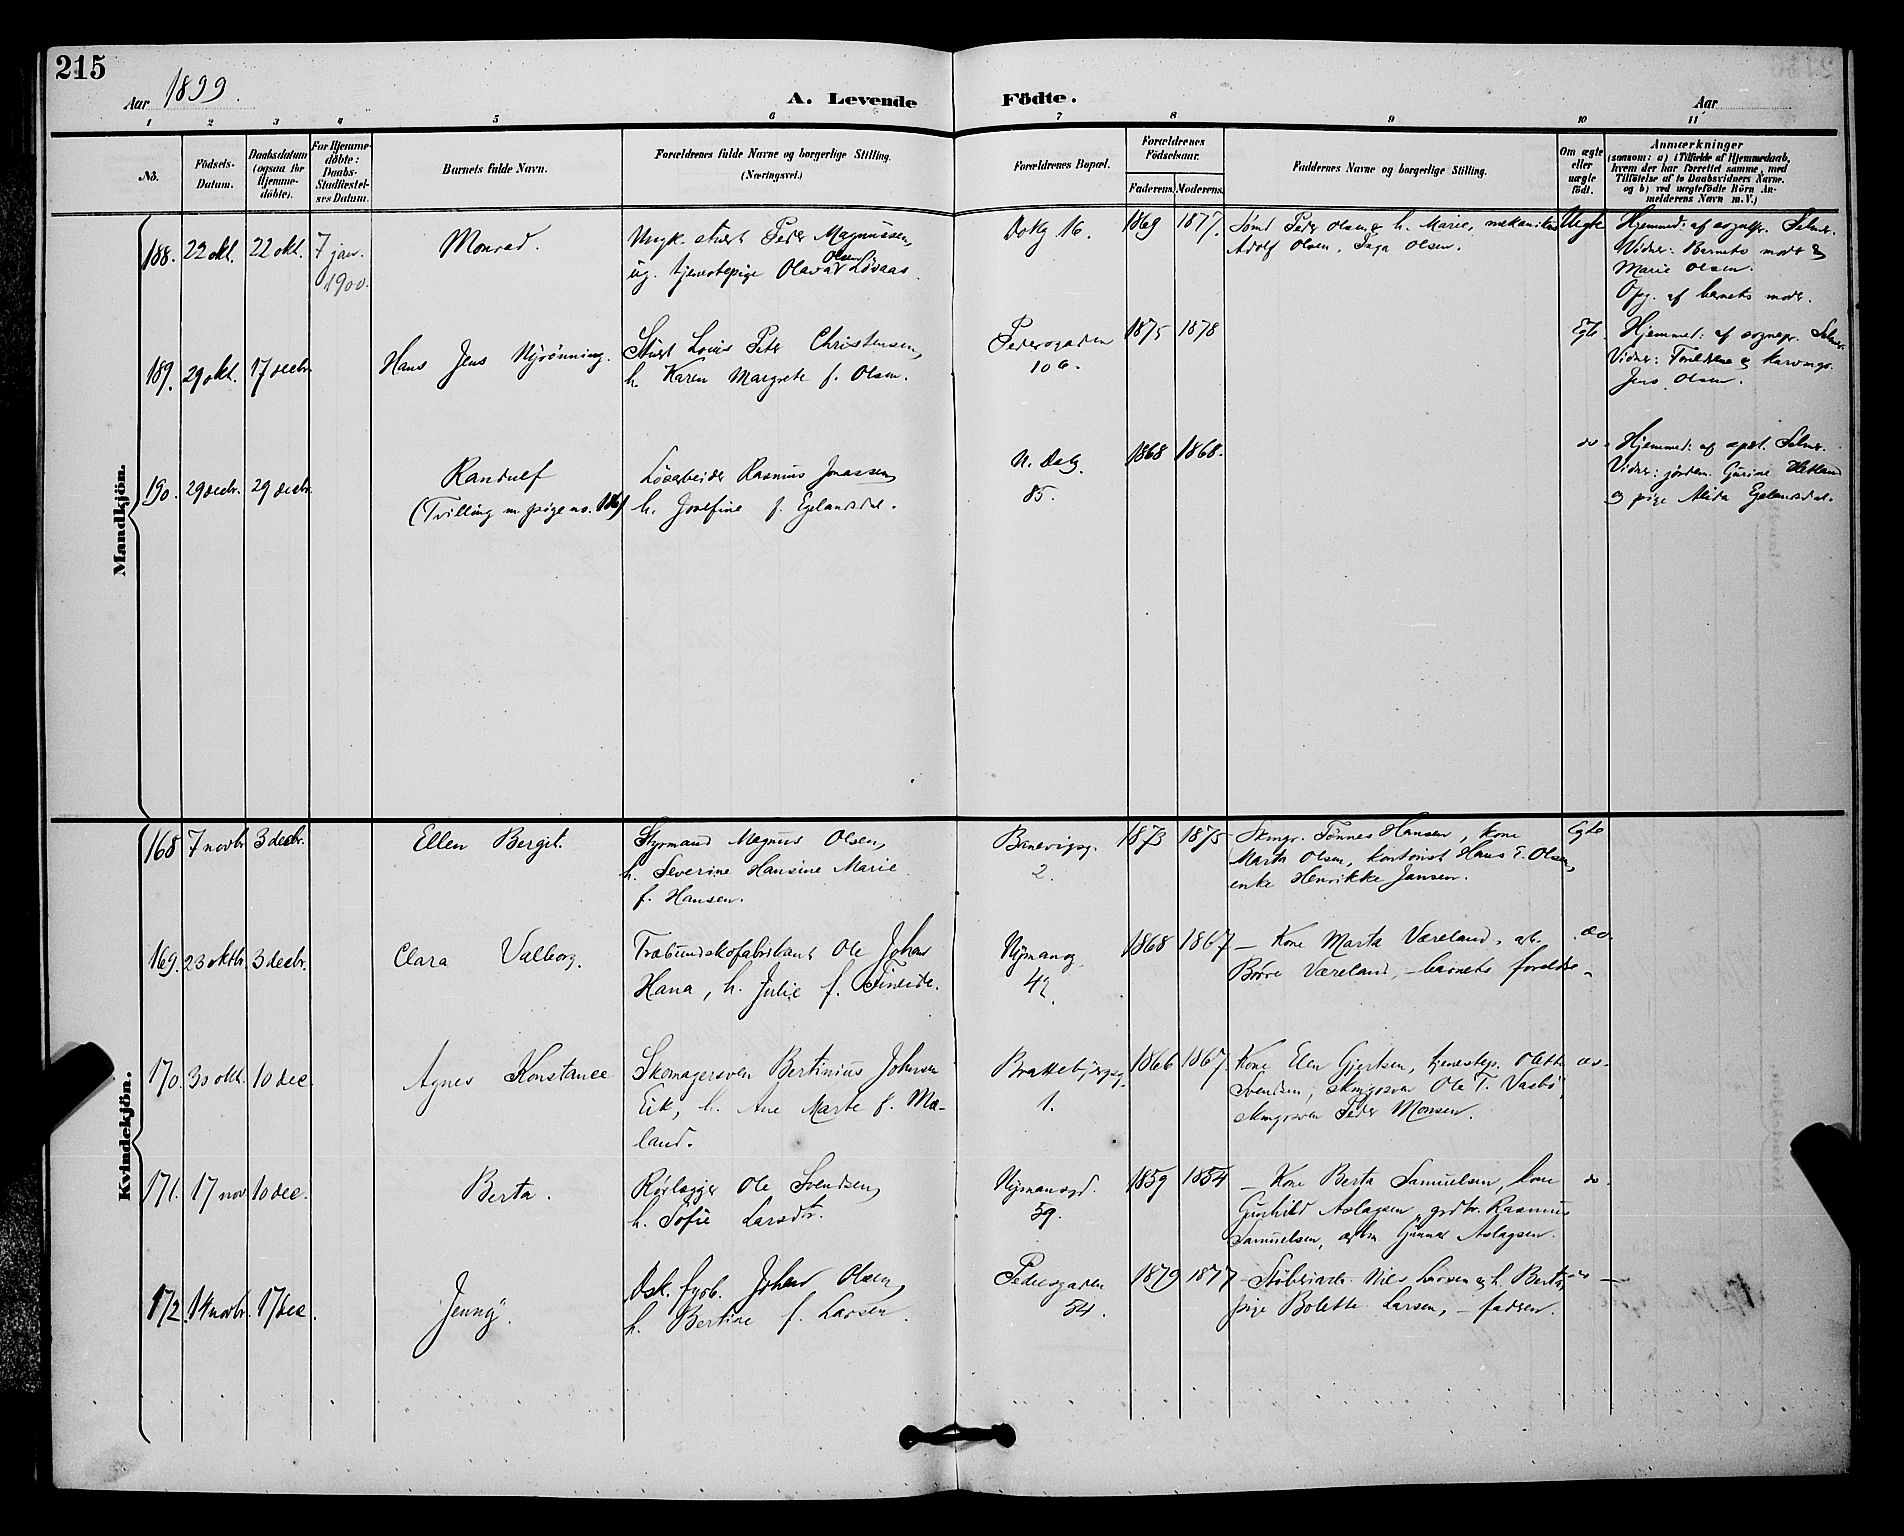 215
Aar 1899.
A. Levende Födte.
Aar
1 2 3 4 5 6 7 8 9 10 11
No.
Födsels-Datum.
Daabsdatum (ogsaa for Hjemme-döbte).
For Hjemme-döbte: Daabs-Stadfæstel-ses Datum.
Barnets fulde Navn.
Forældrenes fulde Navne og borgerlige Stilling.
(Næringsvei.)
Forældrenes Bopæl.
Forældrenes Födselsaar.
Faderens. Moderens.
Faddernes Navne og borgerlige Stilling.
Om ægte eller uægte födt.
Anmærkninger
(saasom: a) i Tilfælde af Hjemmedaab,
hvem der har forrettet samme, med
Tilföielse af to Daabsvidners Navne.
og b) ved uægtefödte Börn An-
melderens Navn m. V.)
Mandkjön.
188. 22 okt. 22 okt. 7 jan. 1900.
Monrad.
Ungk. stuert Peder Magnussen,
ug. tjenestepige Olava Olsen Løvaas.
Dokg 16.
1869 1877.
Sømd Peder Olsen & h. Marie, mekaniker
Adolf Olsen, Inga Olsen.
Uegte
Hjemmed: af sognepr. Selmer.
Vidner: Barnets moder &
Marie Olsen.
Opg. af barnets moder.
189. 29 okt. 17 decbr.
Hans Jens Nyrønning.
Stuert Louis Peter Christensen,
h. Karen Margrete f. Olsen.
Pedersgaden
106.
1875 1878
Egte
Hjemmed: af sognepr. Selmer.
Vidner: Foreldrene &
Jens Olsen.
190. 29 decbr. 29 decbr.
Randulf
(Tvilling m. pige no. 186)
Løsarbeider Rasmus Jonassen,
h. Josefine f. Egelandsdal.
N. Dalg.
85.
1868 1868.
do.
Hjemmed: af Selmer.
Vidner: jordm. Gurine Hetland
& pige Alida Egelandsdal.
Kvindekjön.
168 7 novbr. 3 decbr.
Ellen Bergit.
Styrmand Magnus Olsen,
h. Severine Hansine Marie
f. Hansen.
Banevigsg.
2.
1873 1875
Skmgr. Tønnes Hansen, kone
Marta Olsen, kontorist Hans T. Olsen,
enke Henrikke Jansen.
Egte
169. 23 oktbr. 3 decbr.
Clara Valborg.
Træbundskofabrikant Ole Johan
Hana, h. Julie f. Tineide.
Nymansg.
42.
1868 1867
– Kone Marta Væreland, arb.
Børe Væreland, – barnets foreldre.
do.
170. 30 okt. 10 dec.
Agnes Konstance
Skomagersven Bertinius Johnsen
Eik, h. Ane Marte f. Mæ-
land.
Brattebjergsg.
1.
1866 1867.
Kone Elen Gjertsen, tjenestep. Olette
Svendsen, skmgrsven Ole T. Vasbø,
skmgrsven Peder Monsen.
do.
171. 17 nov. 10 dec.
Berta.
Rørlægger Ole Svendsen,
h. Sofie Larsdtr.
Nymansgd.
59.
1859 1854
– Kone Berta Samuelsen, kone
Gunhild Aslagsen, grdbr. Rasmus
Samuelsen, Gunnar Aslagsen.
do.
172. 14 novbr. 17 dec.
Jenny.
Dsk. fyrb. Johan Olsen,
h. Bertine f. Larsen.
Pedersgaden
54.
1879 1877
– Støberiarb. Nils Larsen & h. Berta,
pige Bolette Larsen, – faderen.
do –